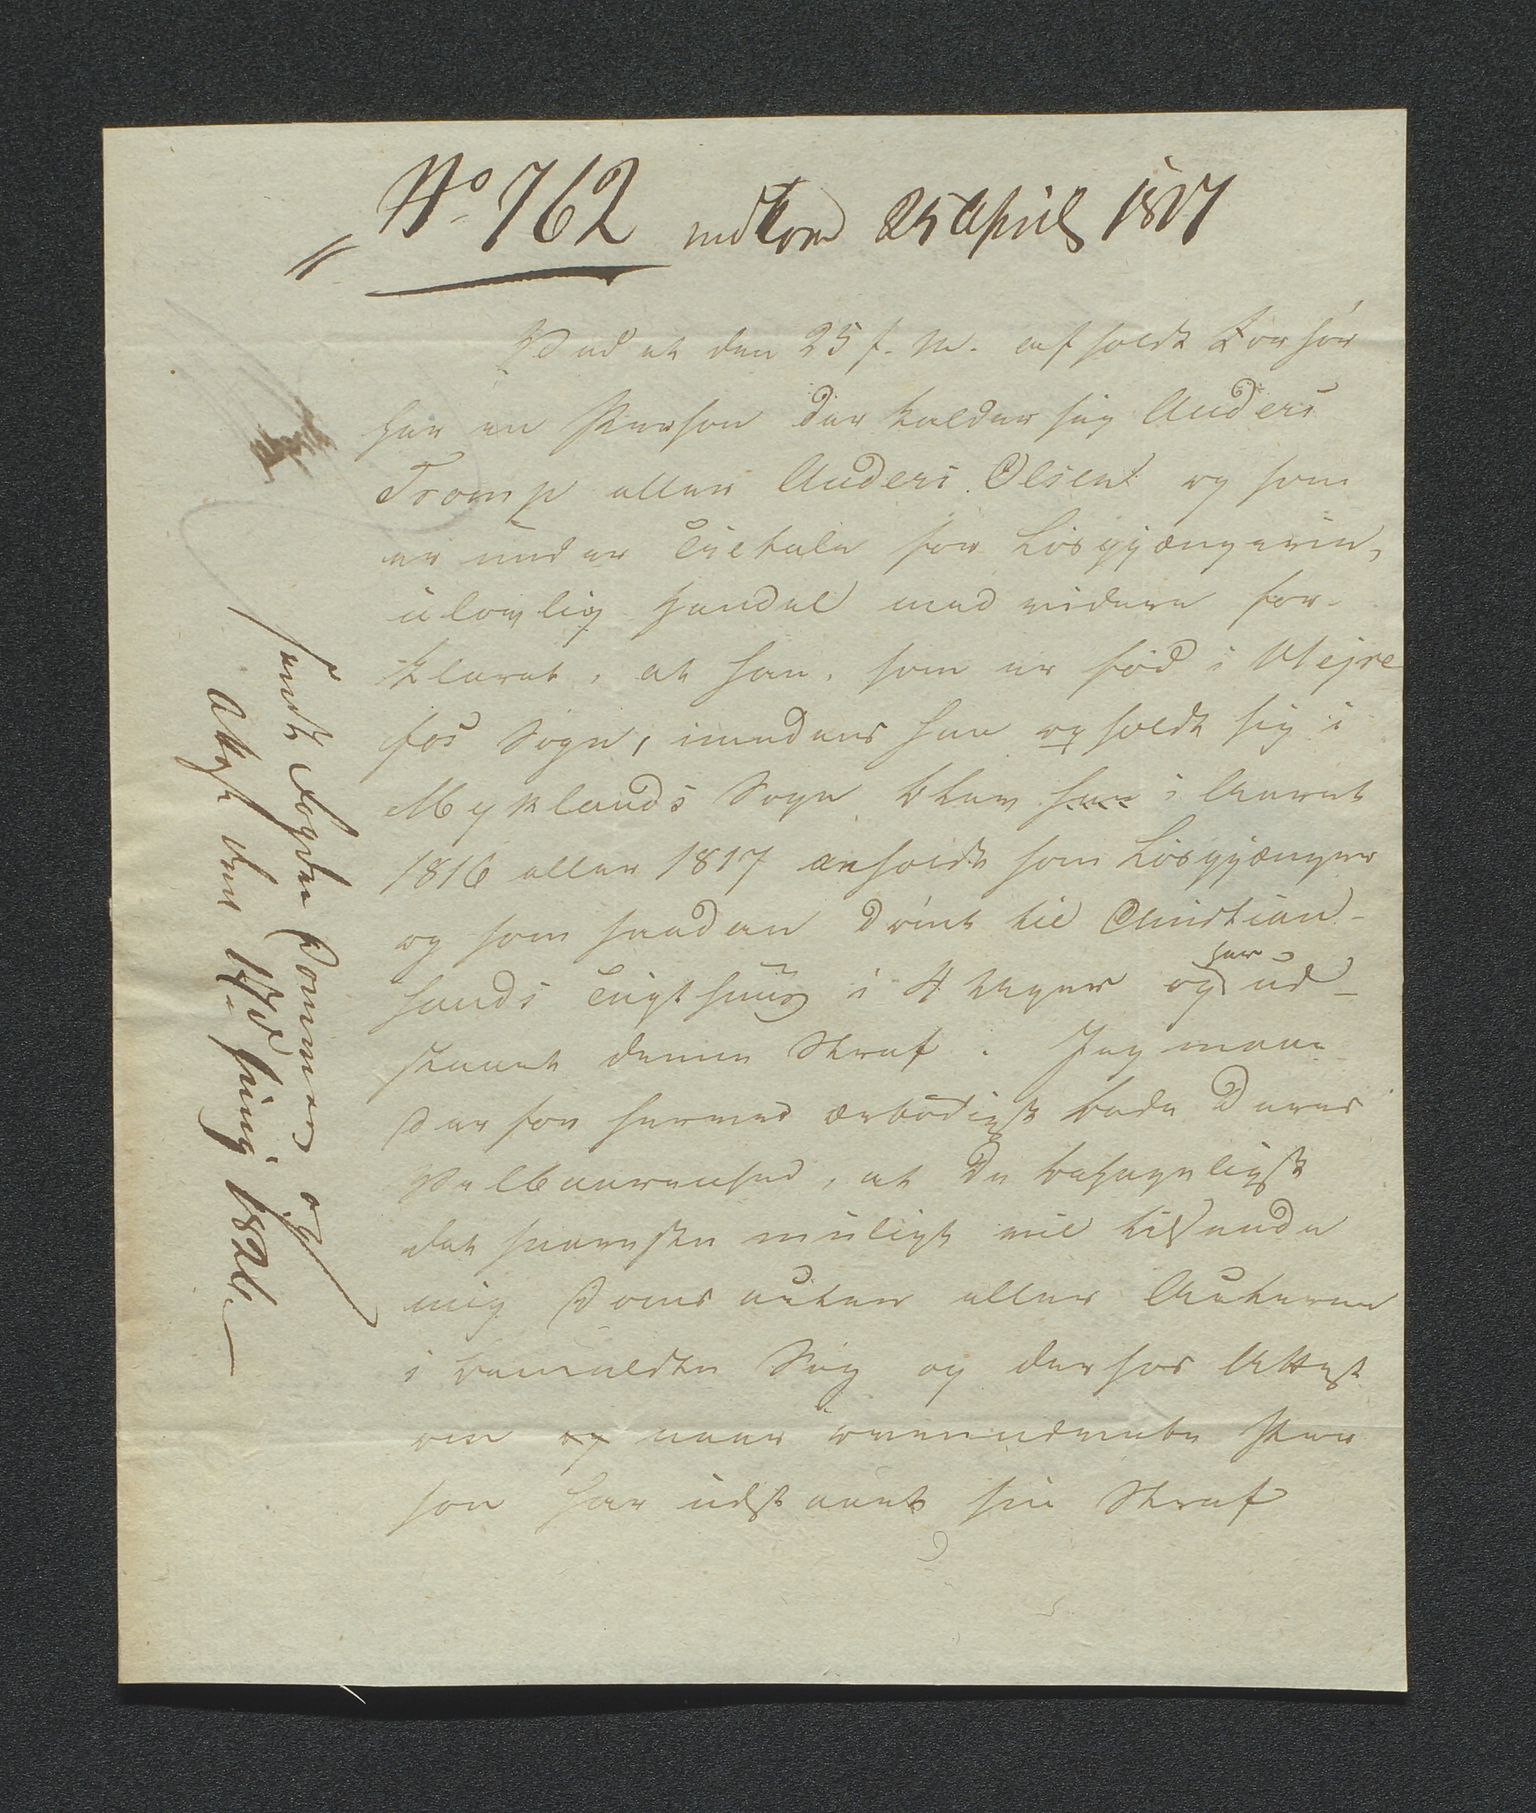 No 762 indkom 25 April 1817
Ved et den 25 f. M. afholdt Forhør
har en Person der kalder sig Anders
Tromp eller Anders Olsen og som
er under Tiltale for Løsgjængerie,
ulovlig Handel med videre for-
klaret, at han, som er fød i Vejre
fos Sogn, imedens han opholdt sig i
Myklands Sogn blev han i Aaret
1816 eller 1817 anholdt som Løsgjænger
og som saadan dømt til Christian-
sands Tugthuus i 4 Uger og har ud-
staaet denne Straf. Jeg maae
derfor herved ærbødigst bede Deres
Velbaarenhed, at De behageligst
det snareste muligt vil tilsende
mig Doms acten eller Acterne
i bemeldte Sag og derhos Attest
om og naar ovennævnte Per
son har udstaaet sin Straf
sendt Fogden Dommen og
Attest den 17d Junj 182